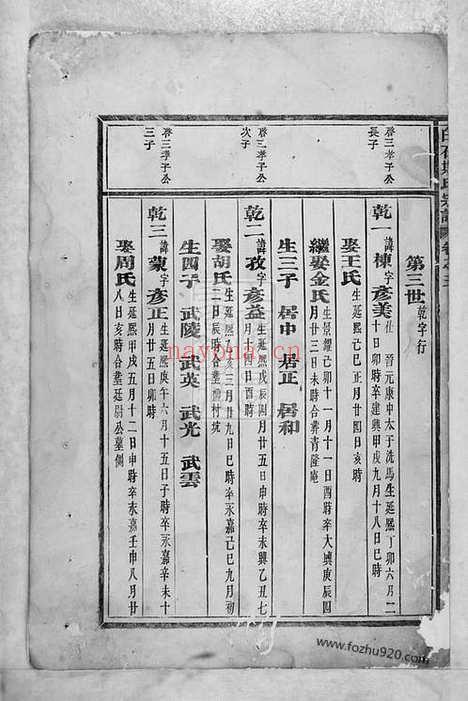 第三世 乾字行
啓三孝子公長子
乾一 諱棟字彦美 仕晉元康中太子洗馬生延熙丁卯六月二十日卯時卒建興甲戌九月十八日巳時
娶王氏 生延熙己巳正月廿四日亥時
繼娶金氏 生景耀己卯十一月十一日酉時卒大興庚辰四月廿三日未時合葬青隆庵
生三子 居中 居正 居和
啓三孝子公次子
乾二 諱孜字彦益 生延熙戊辰四月廿五日申時卒永興乙丑七月 日酉時
娶胡氏 生延熙 亥三月廿九日巳時卒永嘉己巳九月初二日辰時合 村坑
生四子 武陵 武英 武光 武雲
啓三孝子公三子
乾三 諱蒙字彦正 生延熙庚午六月十五日子時卒永嘉辛未十月廿五日卯時
娶周氏 生延熙甲戌五月十二日申時卒永嘉壬申八月廿八日亥時合塟廷尉公墓側
nayona.cn
www.fozhu920.com